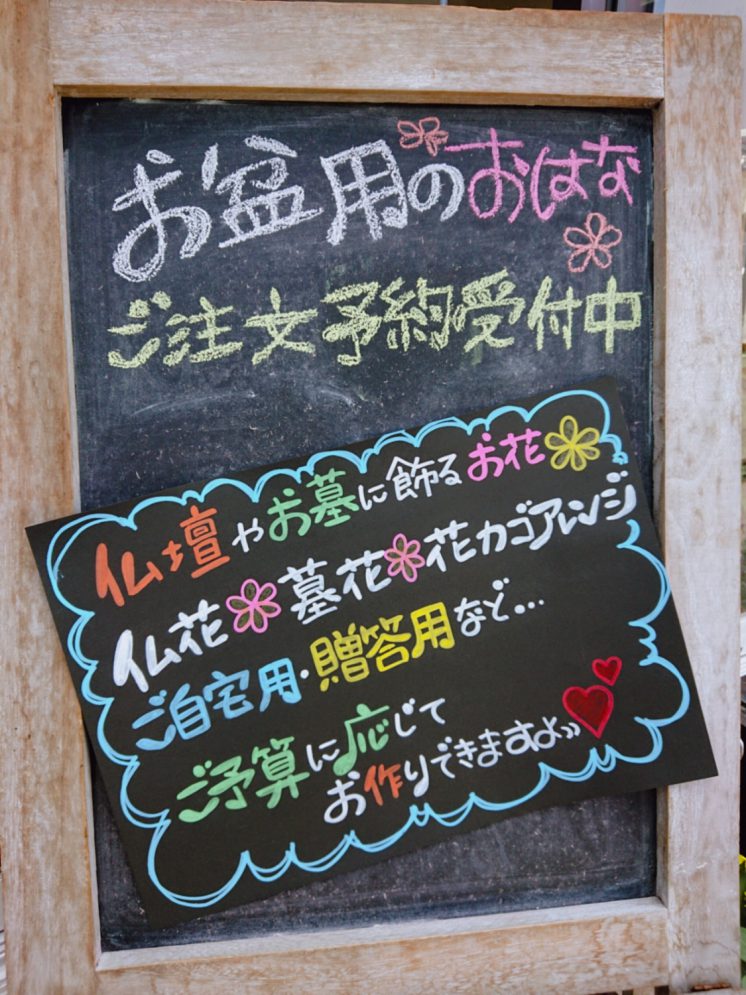 お盆用のおはな
ご注文予約受付中
仏壇やお墓に飾るお花
仏花 墓花 花カゴアレンジ
ご自宅用・贈答用など...
ご予算に応じて
お作りできますよ»